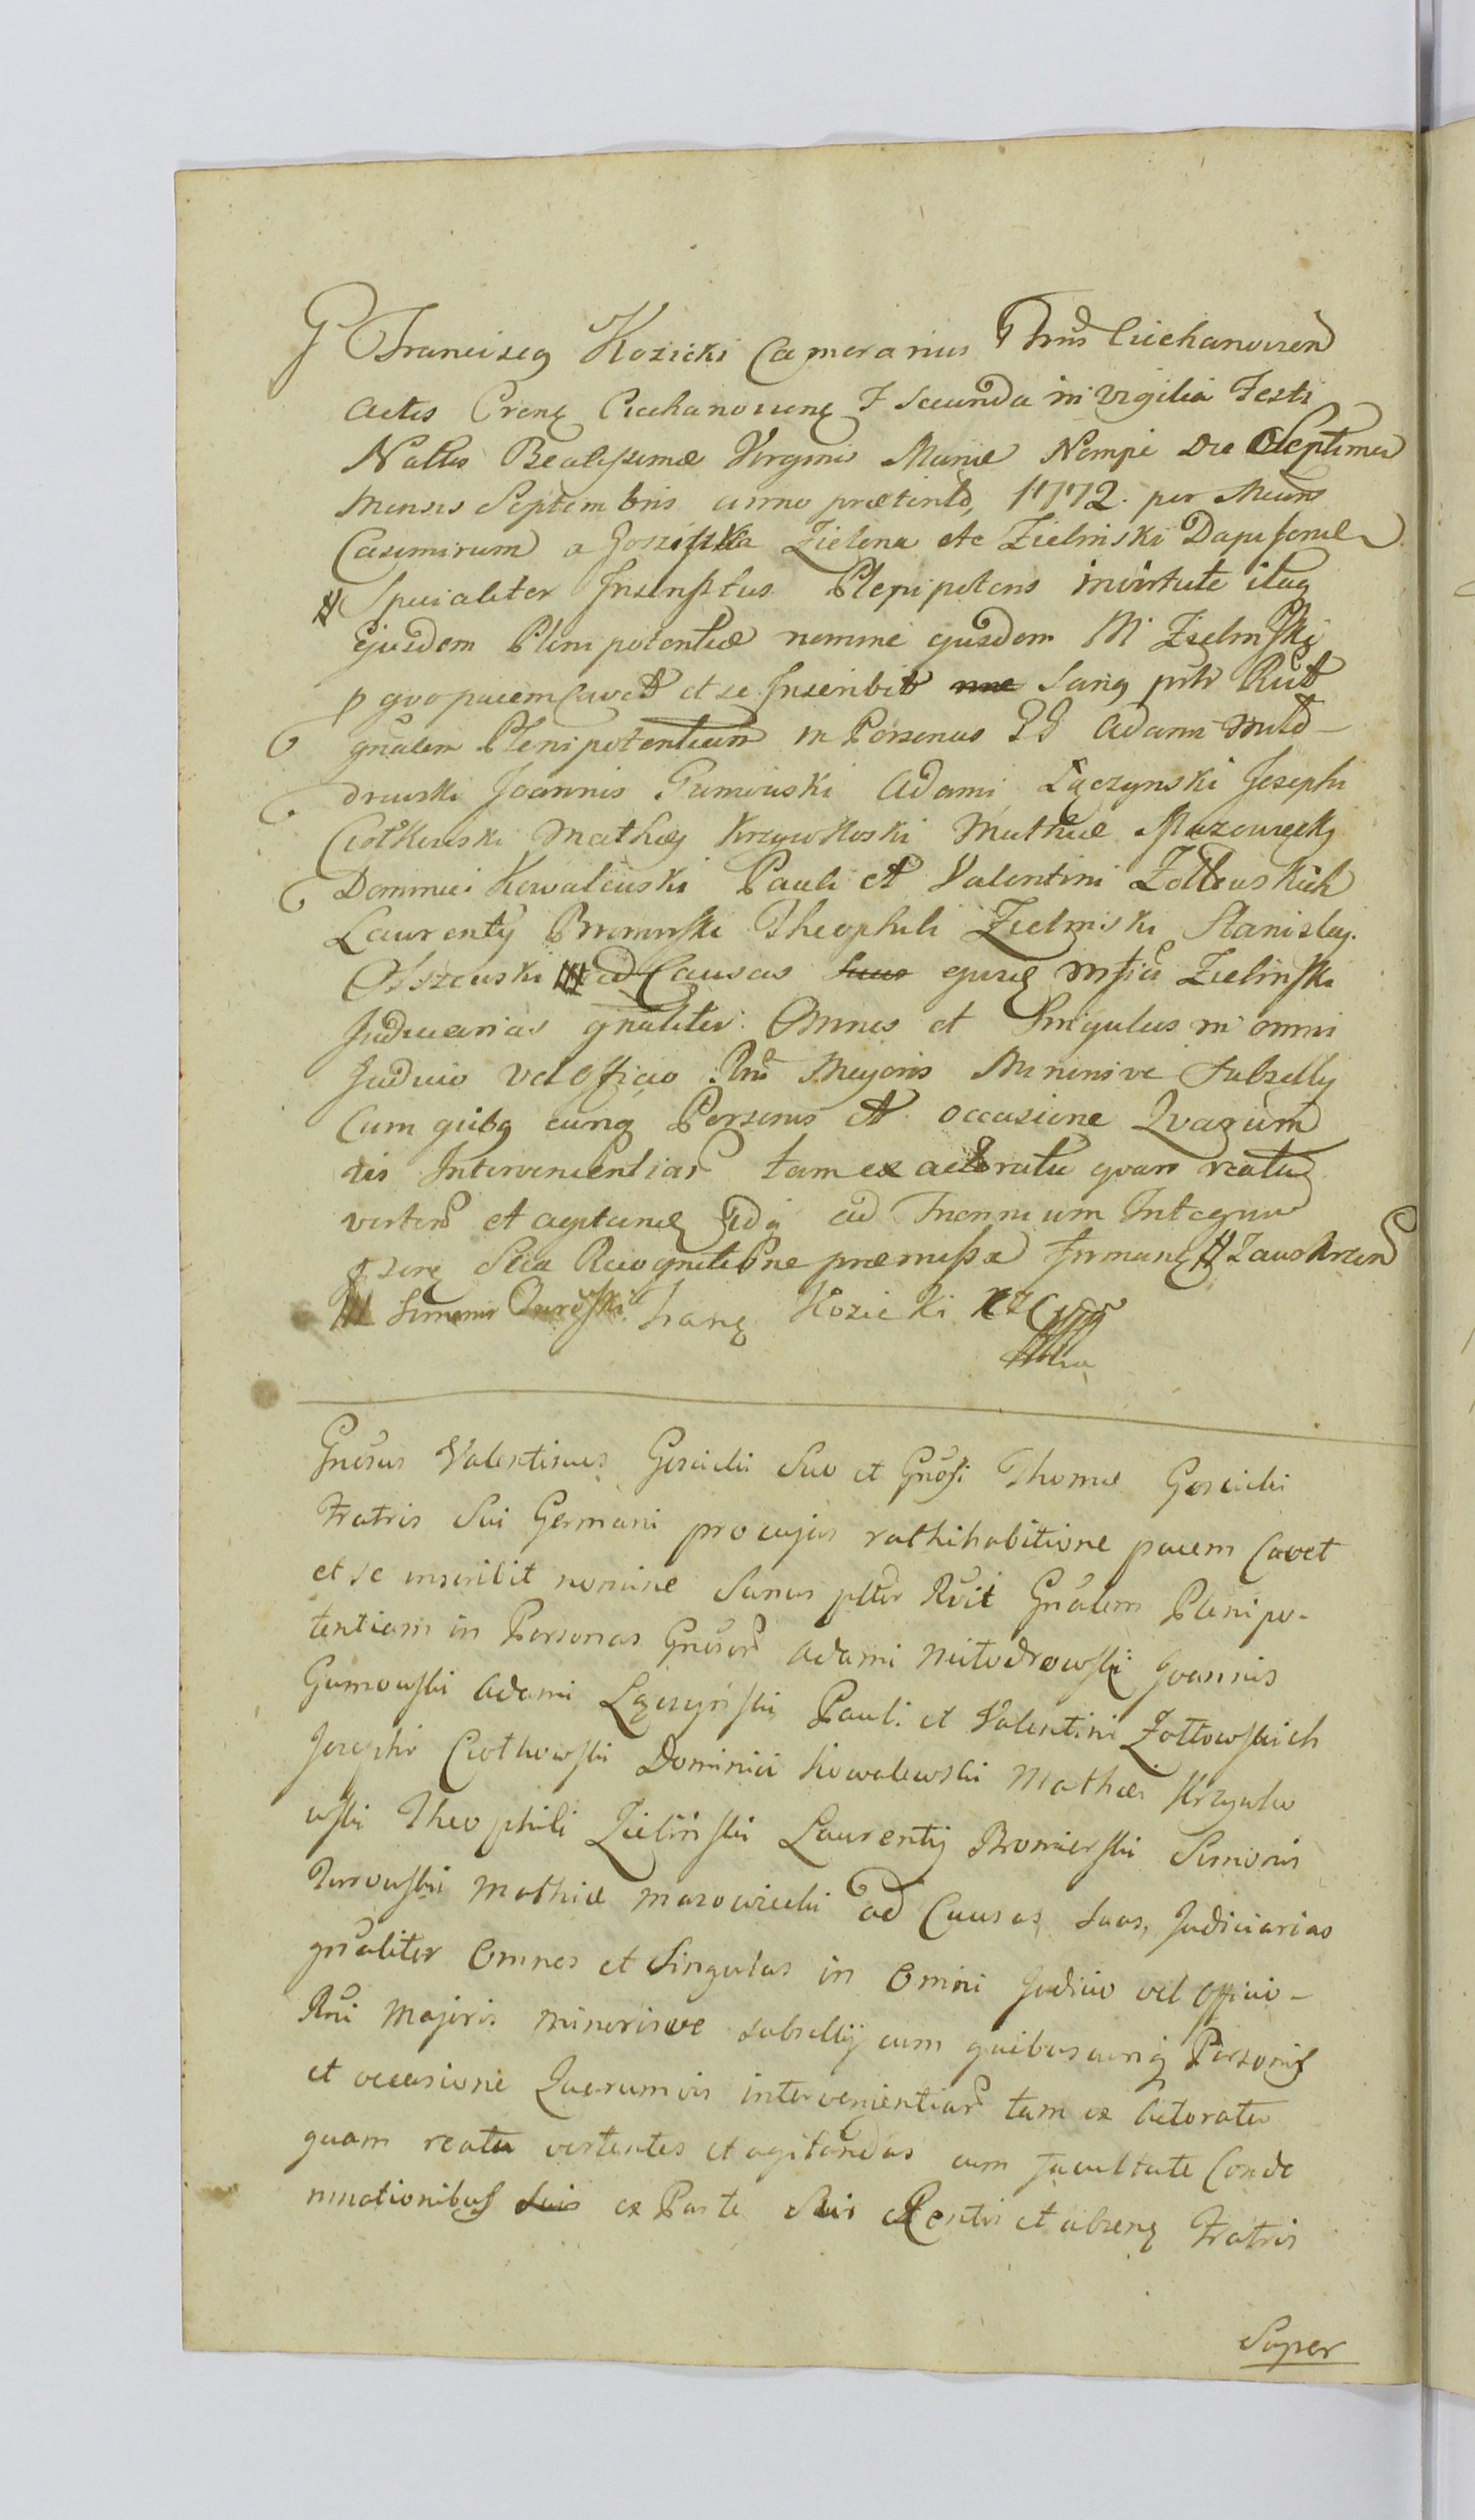 G Franciscq Kozicki Camerarius Trris Ciechanovien
Actis Crens Ciechanoviens F Secunda in vigilia Festi
Nattis Beatissimæ Virginis Mariæ Nempe Die Septima
Mensis Septembris anno prætento, 1772. per Mcum
Casimirum a Zielona etc Zielinski Dapiferum
# Specialiter Inscriptus Plenipotens invirtute itaq
Ejusdem Plenipotentiæ nomine ejusdem M Zielinski
p quo pacem cavet et se Inscribit sanq pltr Rcit
gnalem Plenipotentiam in Personas GG Adami Miłod-
drowski Joannis Gumowski Adami Łączynski Josephi
Ciołkowski Mathiæ Krzywkoski Mathiæ Mazowiecki
Dominici Kowalewski Pauli et Valentini Zołtowskich
Laurentij Bromirski Theophili Zielinski Stanislai
Olszewski # ad Causas suas ejusd Mfici Zielinski
Judiciarias gnaliter Omnes et Singulas in omni
Judicio vel Officio Rni Majoris Minorisve Subsellij
Cum quibq cunq Personis et occasione Quarum
vis Intervenientiar tam ex actoratu quam reatu
verten et agitand Idq ad Triennium Integrum
Recognitione præmissa
# Simonis Franc Kozicki
Gnosus Valentinus Gosciecki Suo et Gnosi Thomæ Gosciecki
Fratris Sui Germani pro cujus rathihabitione pacem Cavet
et se inscribit nomine Sanus pltr Rcit Gnalem Plenipo-
tentiam in Personas Gnosor Adami Miłodrowski Joannis
Gumowski Adami Łączyński Pauli et Valentini Zołtowskich
Josephi Ciołkowski Dominici Kowalewski Mathiæ Krzywko
wski Theophili Zieliński Laurentij Bromierski Simonis
Mathiæ Mazowiecki ad Causas suas, Judiciarias
gnaliter Omnes et Singulas in Omni Judicio vel Officio-
Rni Majoris Minorisve subsellij cum quibuscunq Personis
et occasione Quarumvis intervenientiar tam ex Actoratu
quam reatu vertentes et agitandas cum facultate Conde
mnationibus suis ex Parte Sui et absens Fratris
Super